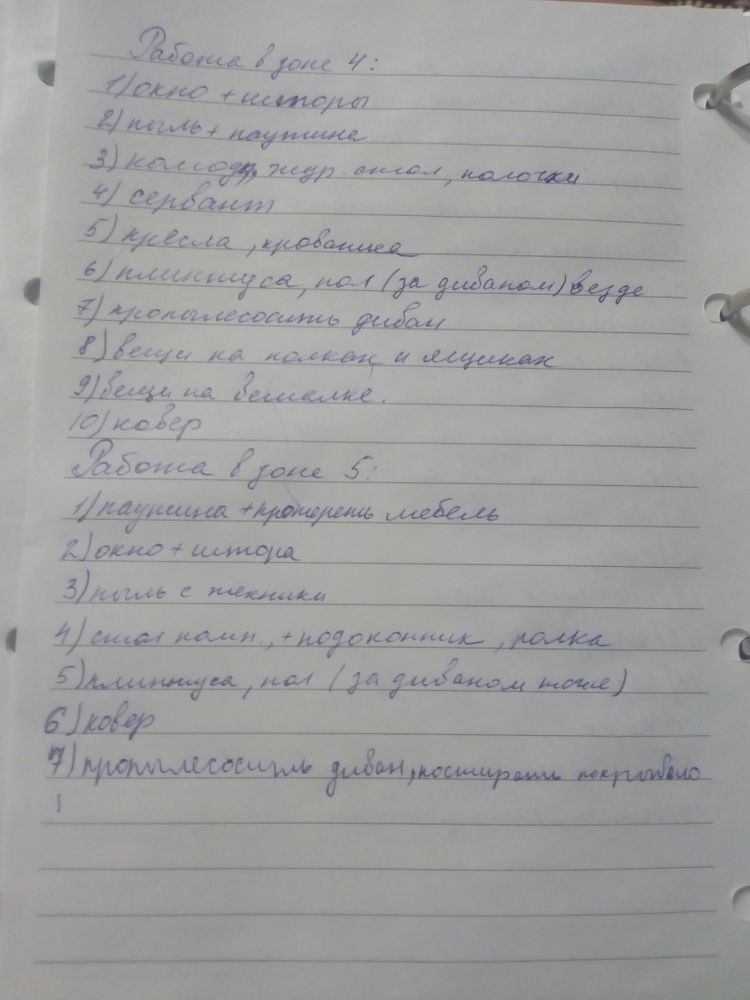 Работа в зоне 4:
1) окно + шторы
2) пыль + паутина
3) комод, жур. стол, полочки
4) сервант
5) кресла, кроватка
6) плинтуса, пол (за диваном) везде
7) пропылесосить диван
8) вещи на полках и ящиках
9) вещи на вешалке.
10) ковер
Работа в зоне 5:
1) паутина + протереть мебель
2) окно + штора
3) пыль с техники
4) стол комп., + подоконник, полка
5) плинтуса, пол (за диваном тоже)
6) ковер
7) пропылесосить диван, постирать покрывало